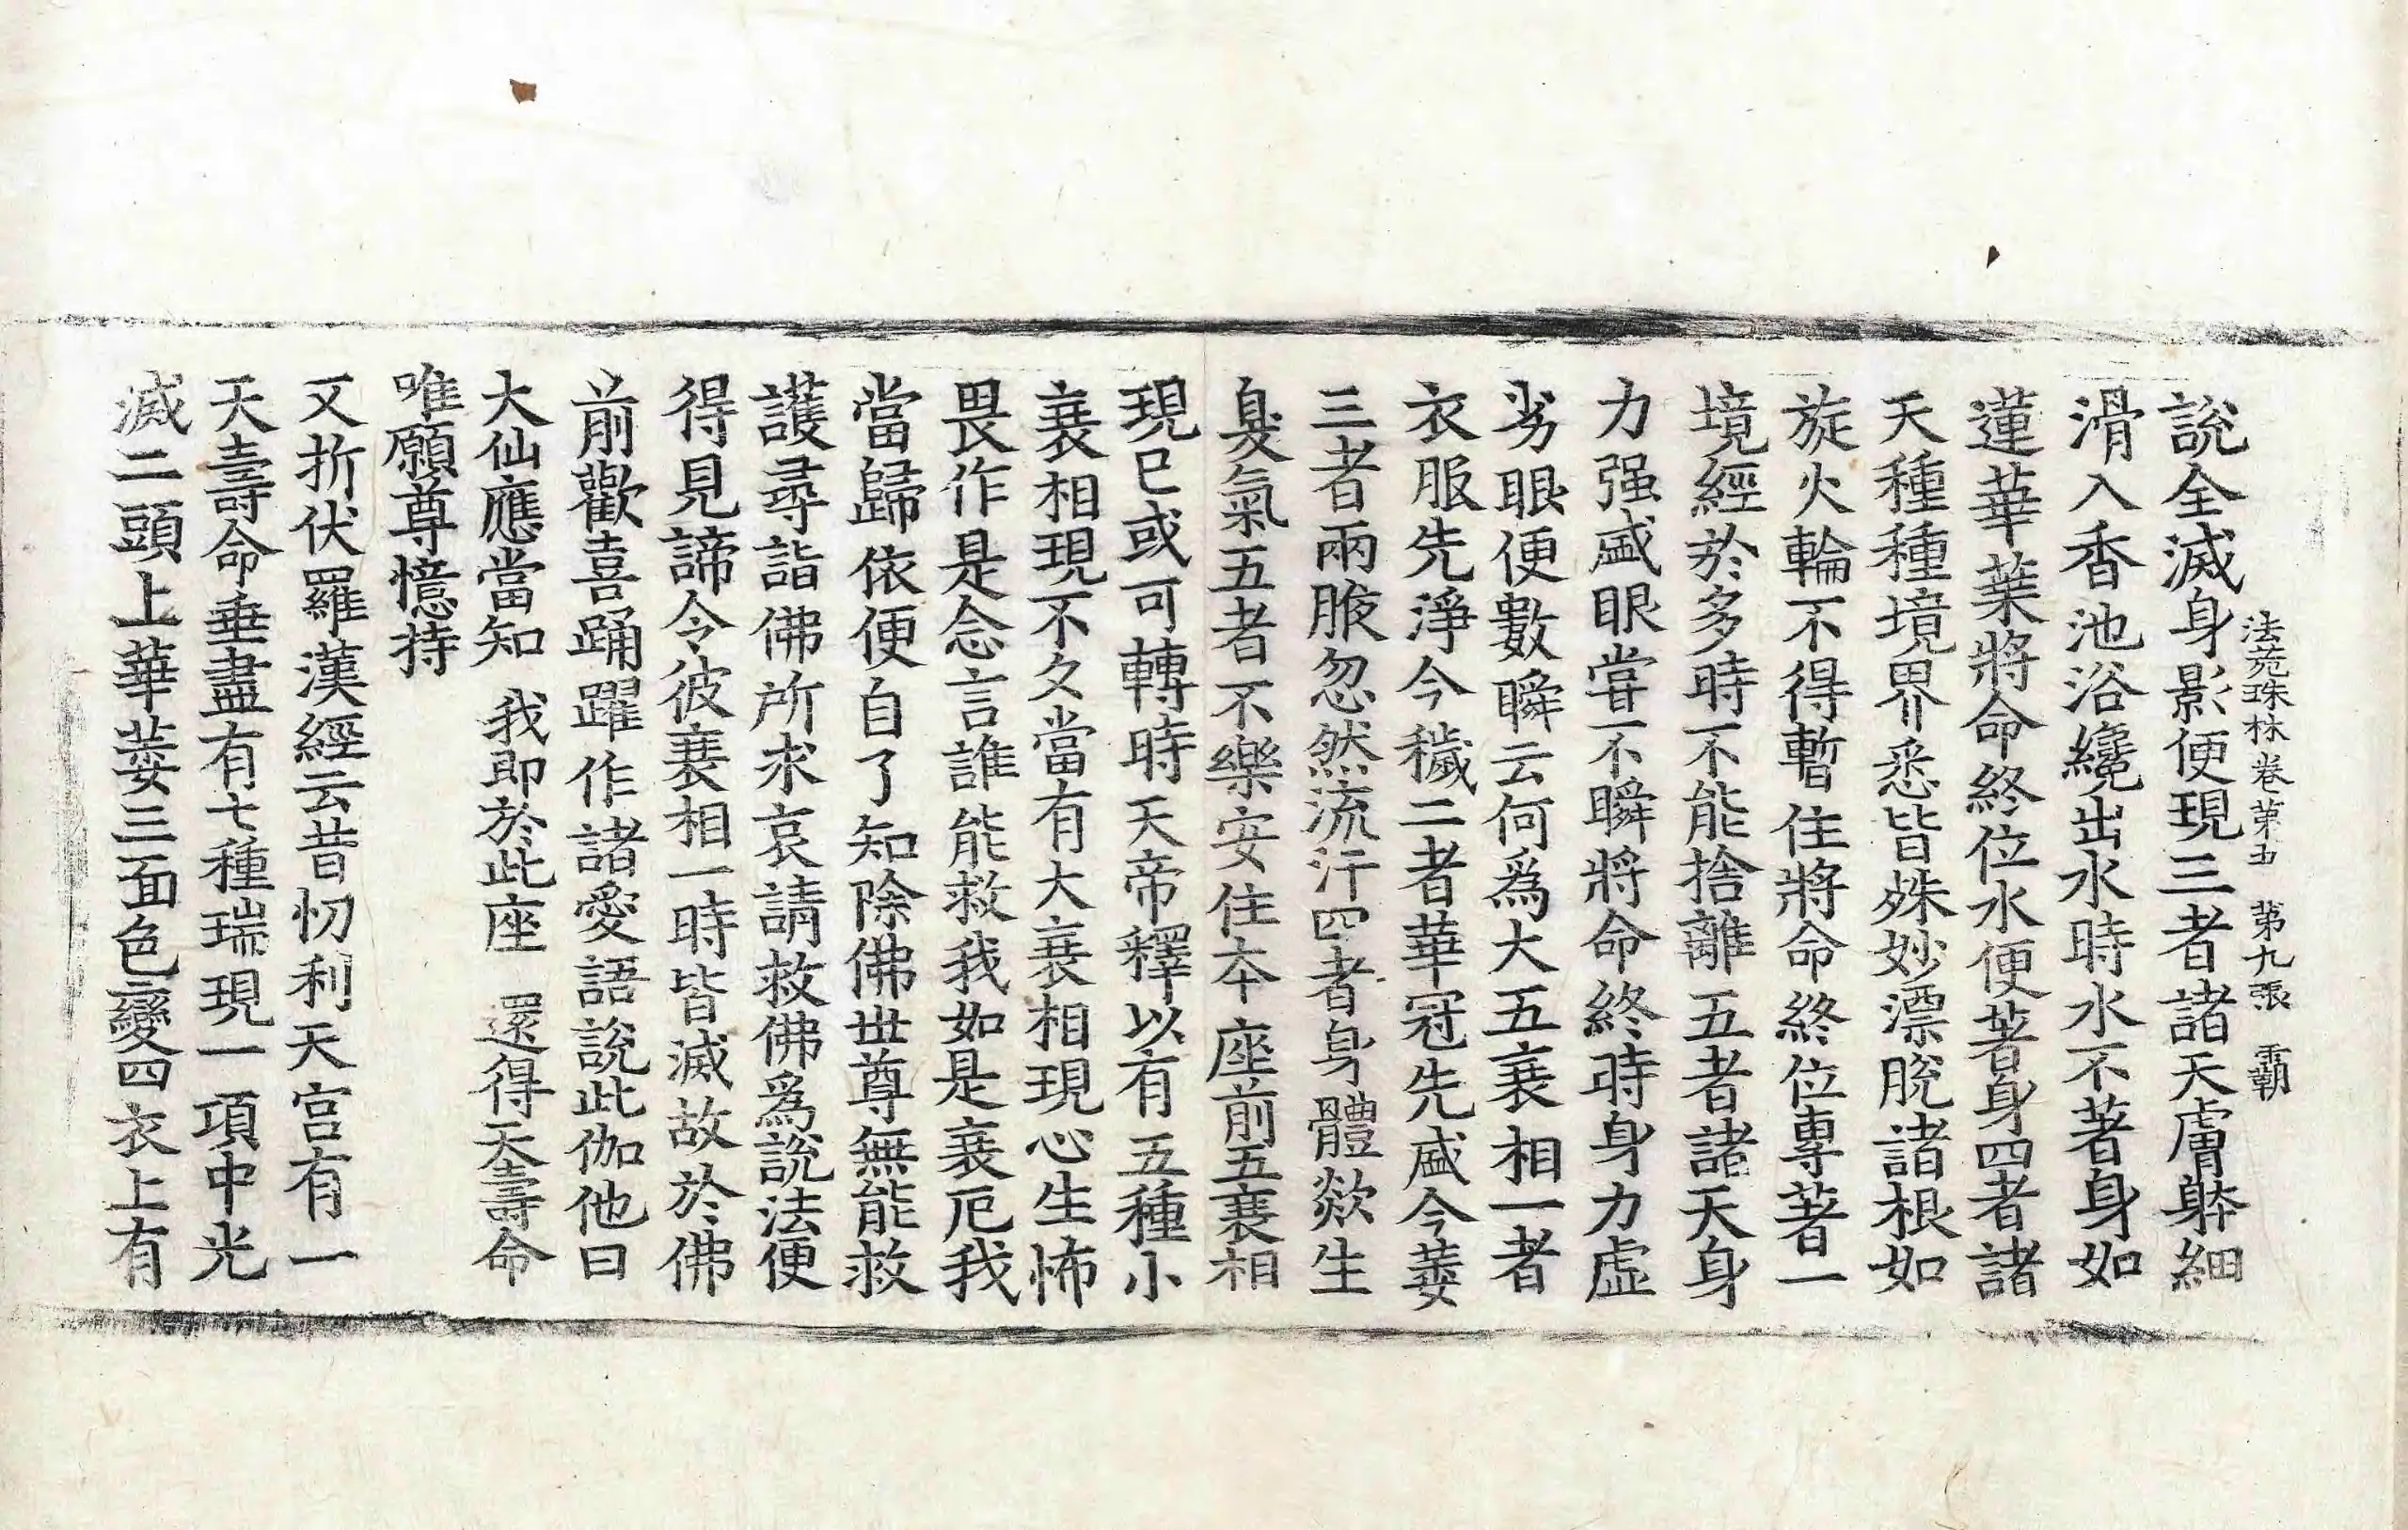 法苑珠林卷第五 第九張 覇
說全滅身影便現三者諸天膚躰細
滑入香池浴纔出水時水不著身如
蓮華葉將命終位水便著身四者諸
天種種境界悉皆姝妙漂脫諸根如
旋火輪不得暫住將命終位專著一
境經於多時不能捨離五者諸天身
力强盛眼甞不瞬將命終時身力虛
劣眼便數瞬云何爲大五衰相一者
衣服先淨今穢二者華冠先盛今萎
三者兩腋忽然流汗四者身體欻生
臭氣五者不樂安住本座前五衰相
現已或可轉時天帝釋以有五種小
衰相現不久當有大衰相現心生怖
畏作是念言誰能救我如是衰厄我
當歸依便自了知除佛世尊無能救
護尋詣佛所求哀請救佛爲說法便
得見諦令彼衰相一時皆滅故於佛
前歡喜踊躍作諸愛語說此伽他曰
大仙應當知 我即於此座 還得天壽命
唯願尊憶持
又折伏羅漢經云昔忉利天宮有一
天壽命垂盡有七種瑞現一項中光
滅二頭上華萎三面色變四衣上有